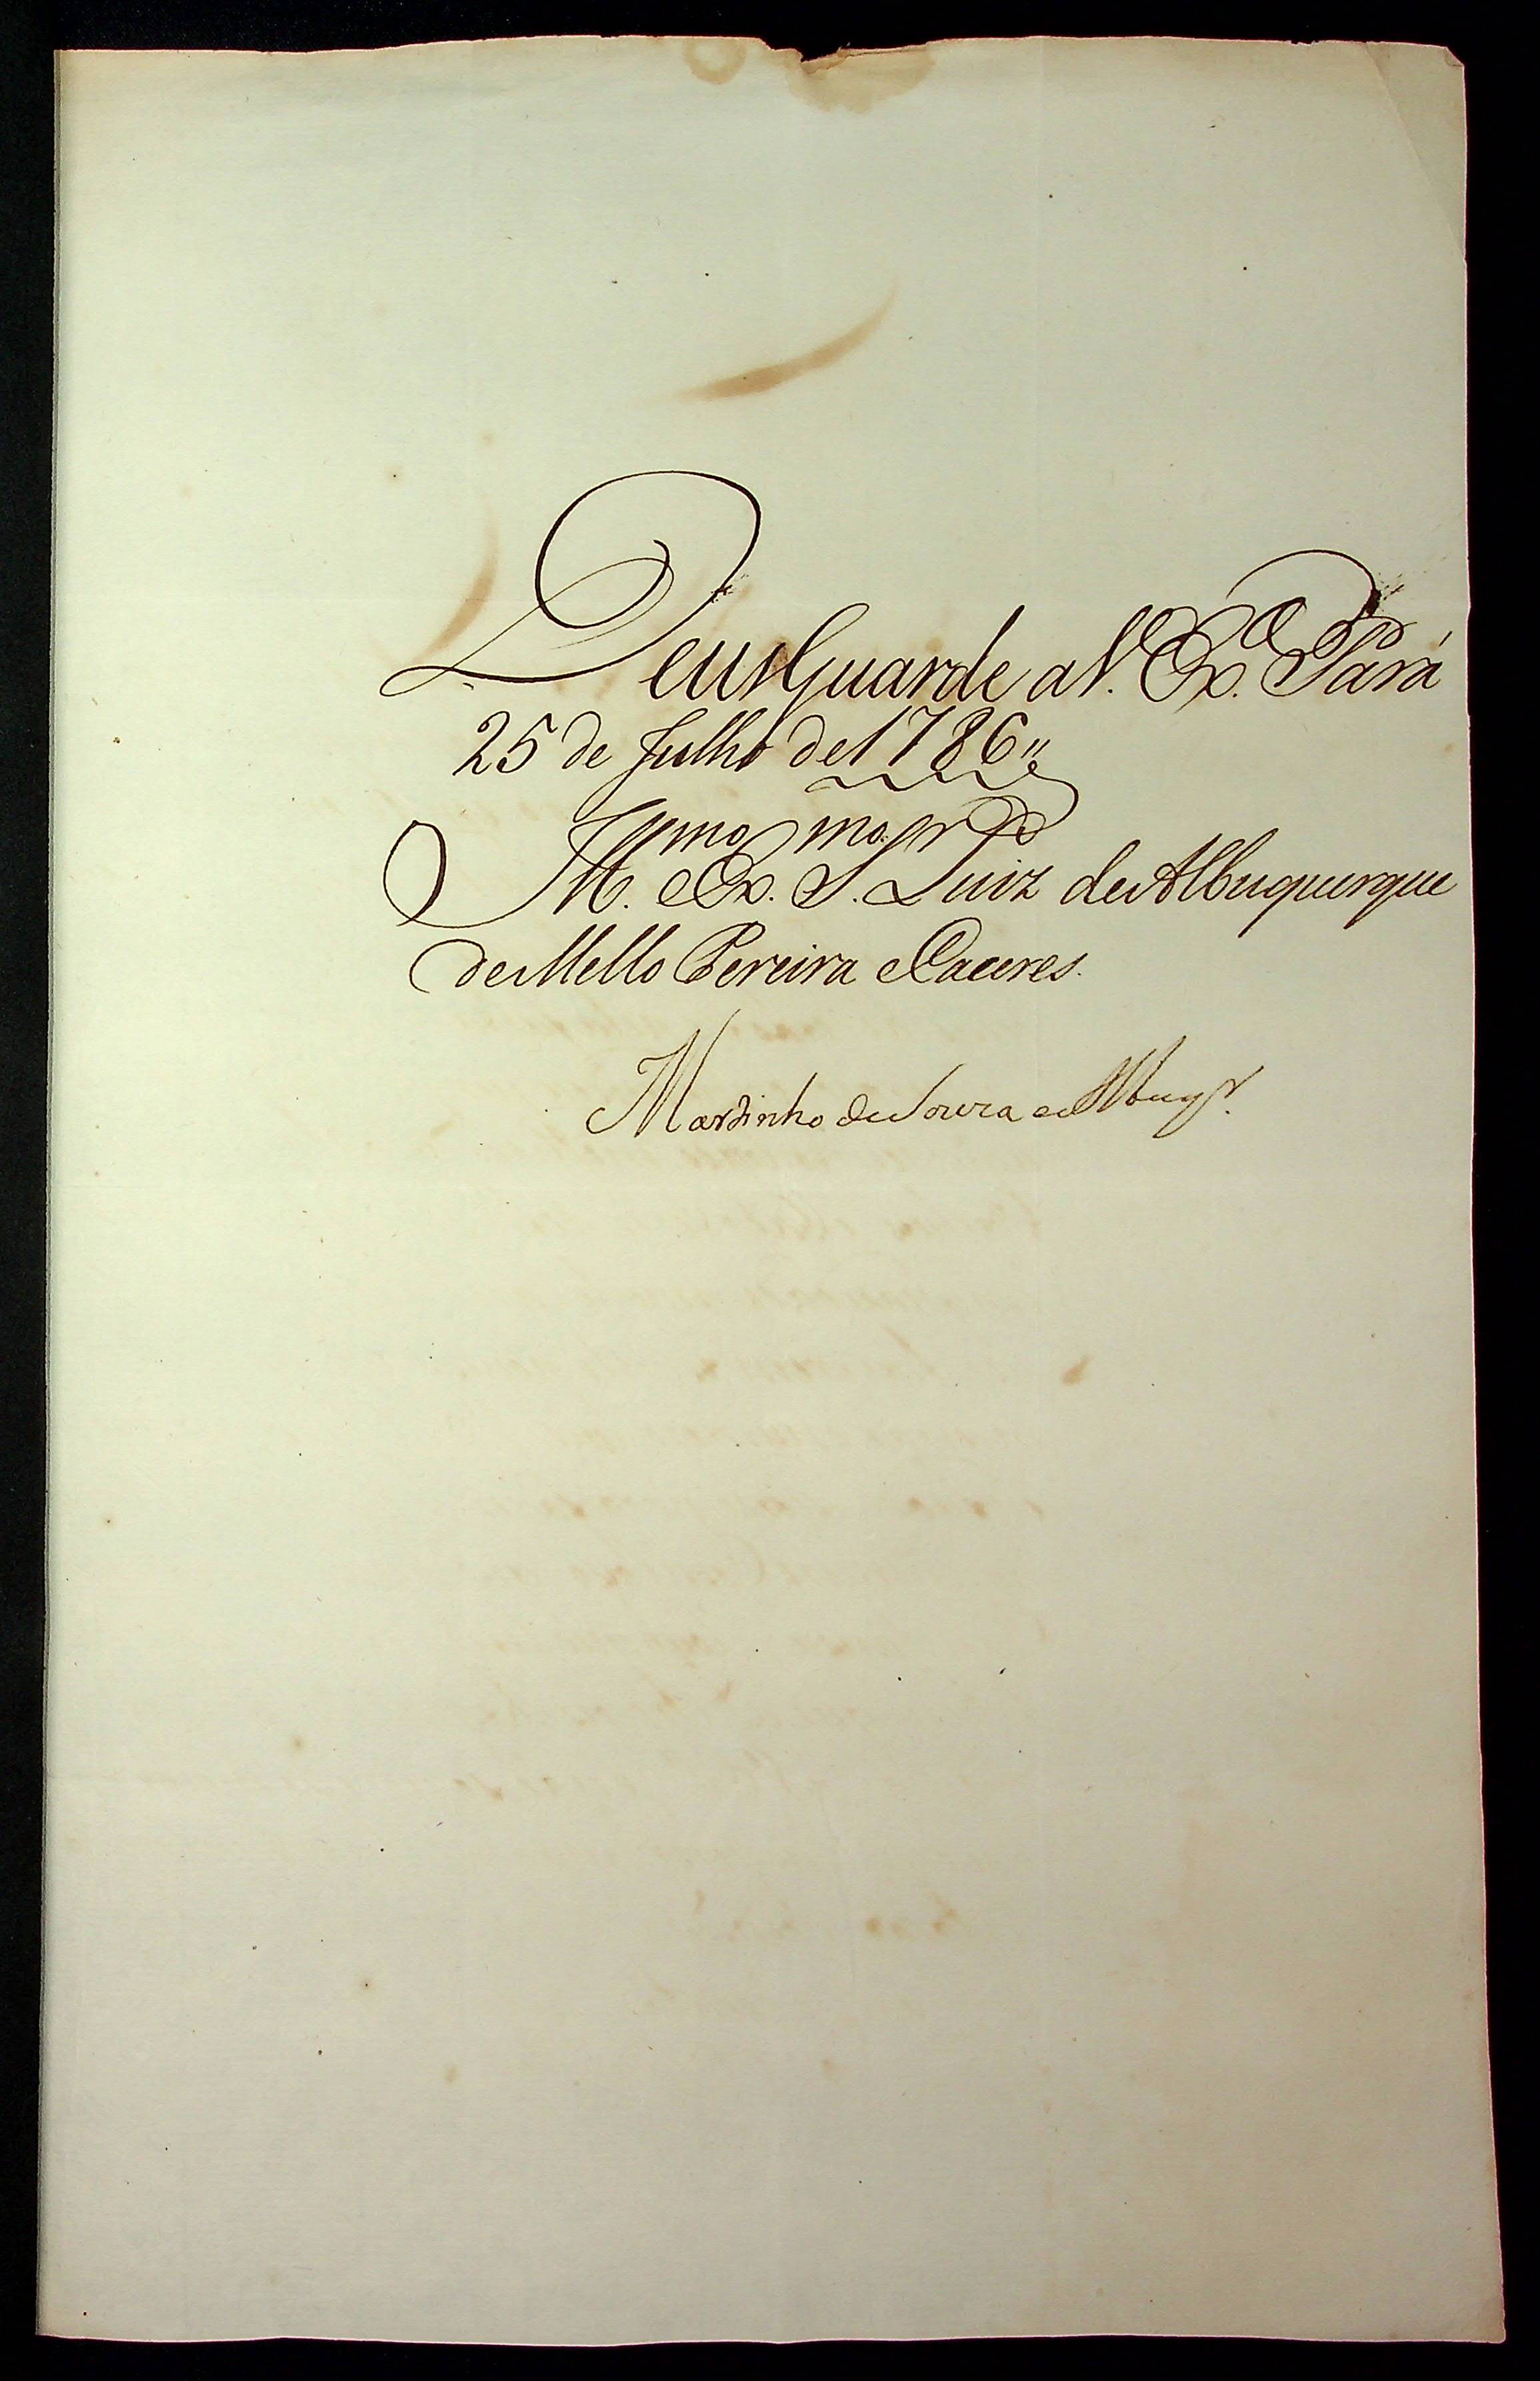 Deus Guarde a V. Ex.ª Pará
25 de Julho de 1786 "
Ill.mo e Ex.mo S.r Luiz de Albuquerque
de Mello Pereira e Caceres.
Martinho de Souza e Albuq.r